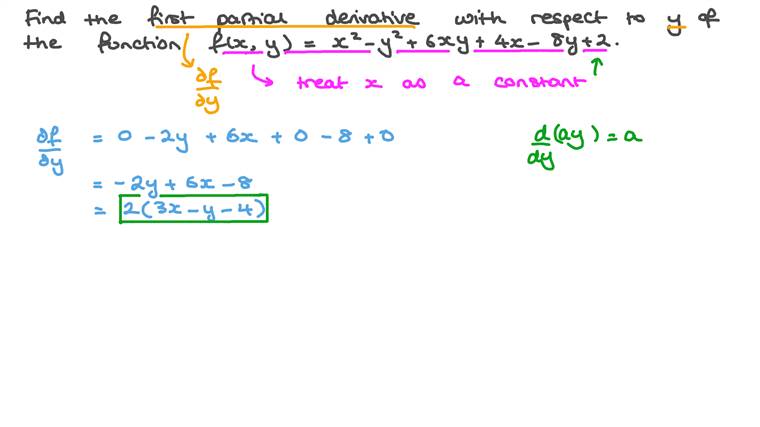 Find the first partial derivative with respect to y of
the function f(x, y) = x² - y² + 6xy + 4x - 8y + 2.
∂f/∂y
treat x as a constant
∂f/∂y = 0 - 2y + 6x + 0 - 8 + 0
d/dy (ay) = a
= -2y + 6x - 8
= 2(3x - y - 4)